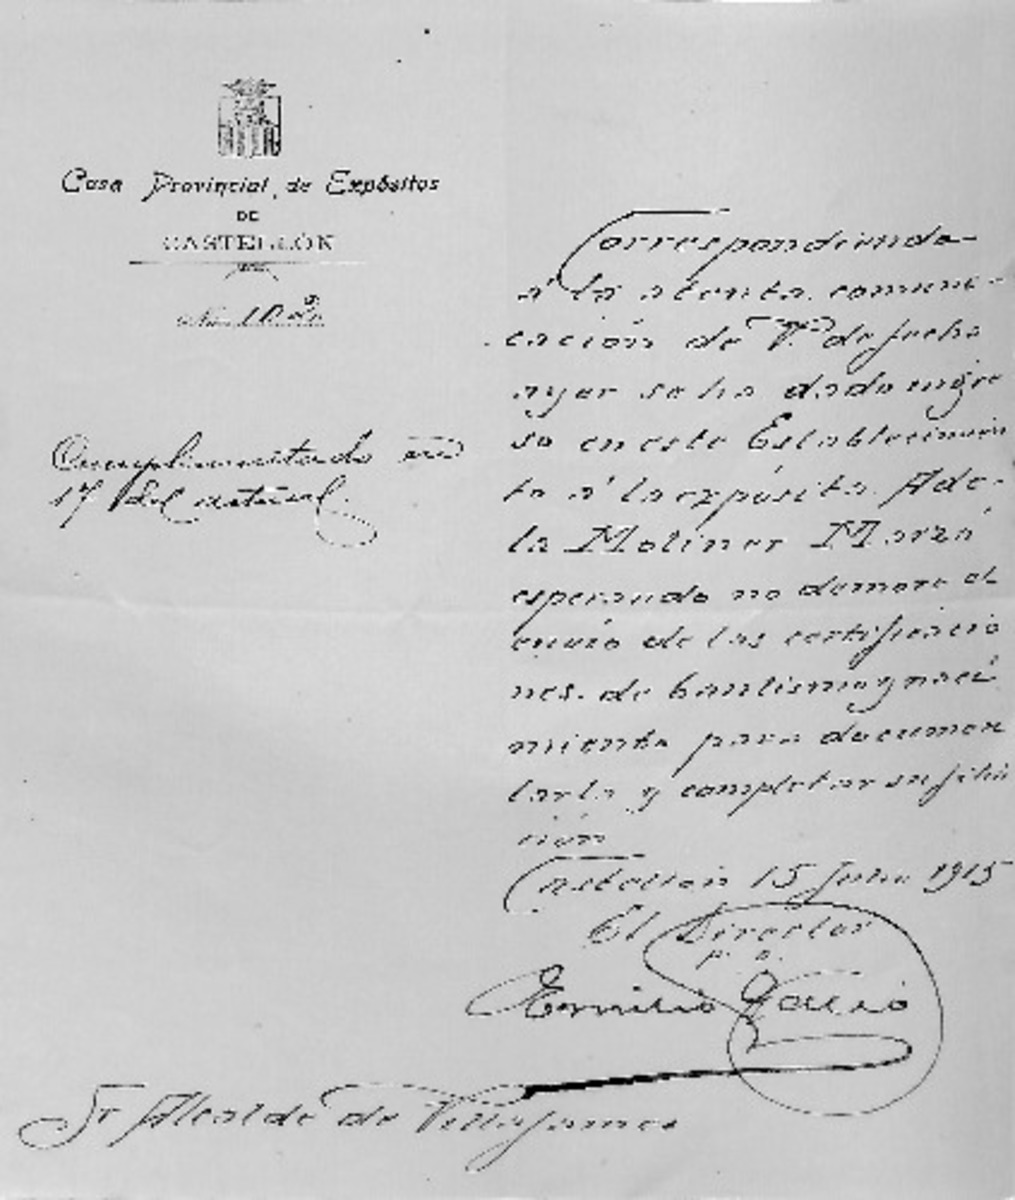 Casa Provincial de Expósitos
DE
CASTELLÓN
Núm. 102
Cumplimentado en
17 del actual.
Correspondiendo
á la atenta comuni-
cación de V. de fecha
ayer se ha dado ingre
so en este Establecimien
to á la expósita Ade-
la Moliner Marzá
esperando no demore el
envío de las certificacio
nes de bautismo y naci
miento para documen
tarla y completar su filia
ción
Castellón 15 Julio 1915
El Director
p. o.
Emilio
Sr Alcalde de Villafames